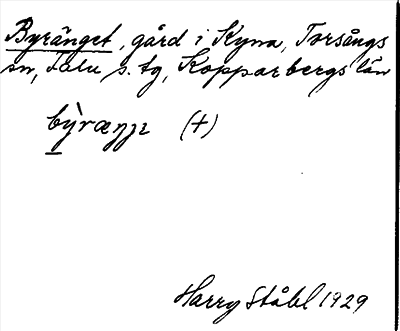 Byränget, gård i Kyna, Torsångs
sn, Falu s. tg, Kopparbergs län
by̌ræŋʒɩ (+)
Harry Ståhl 1929